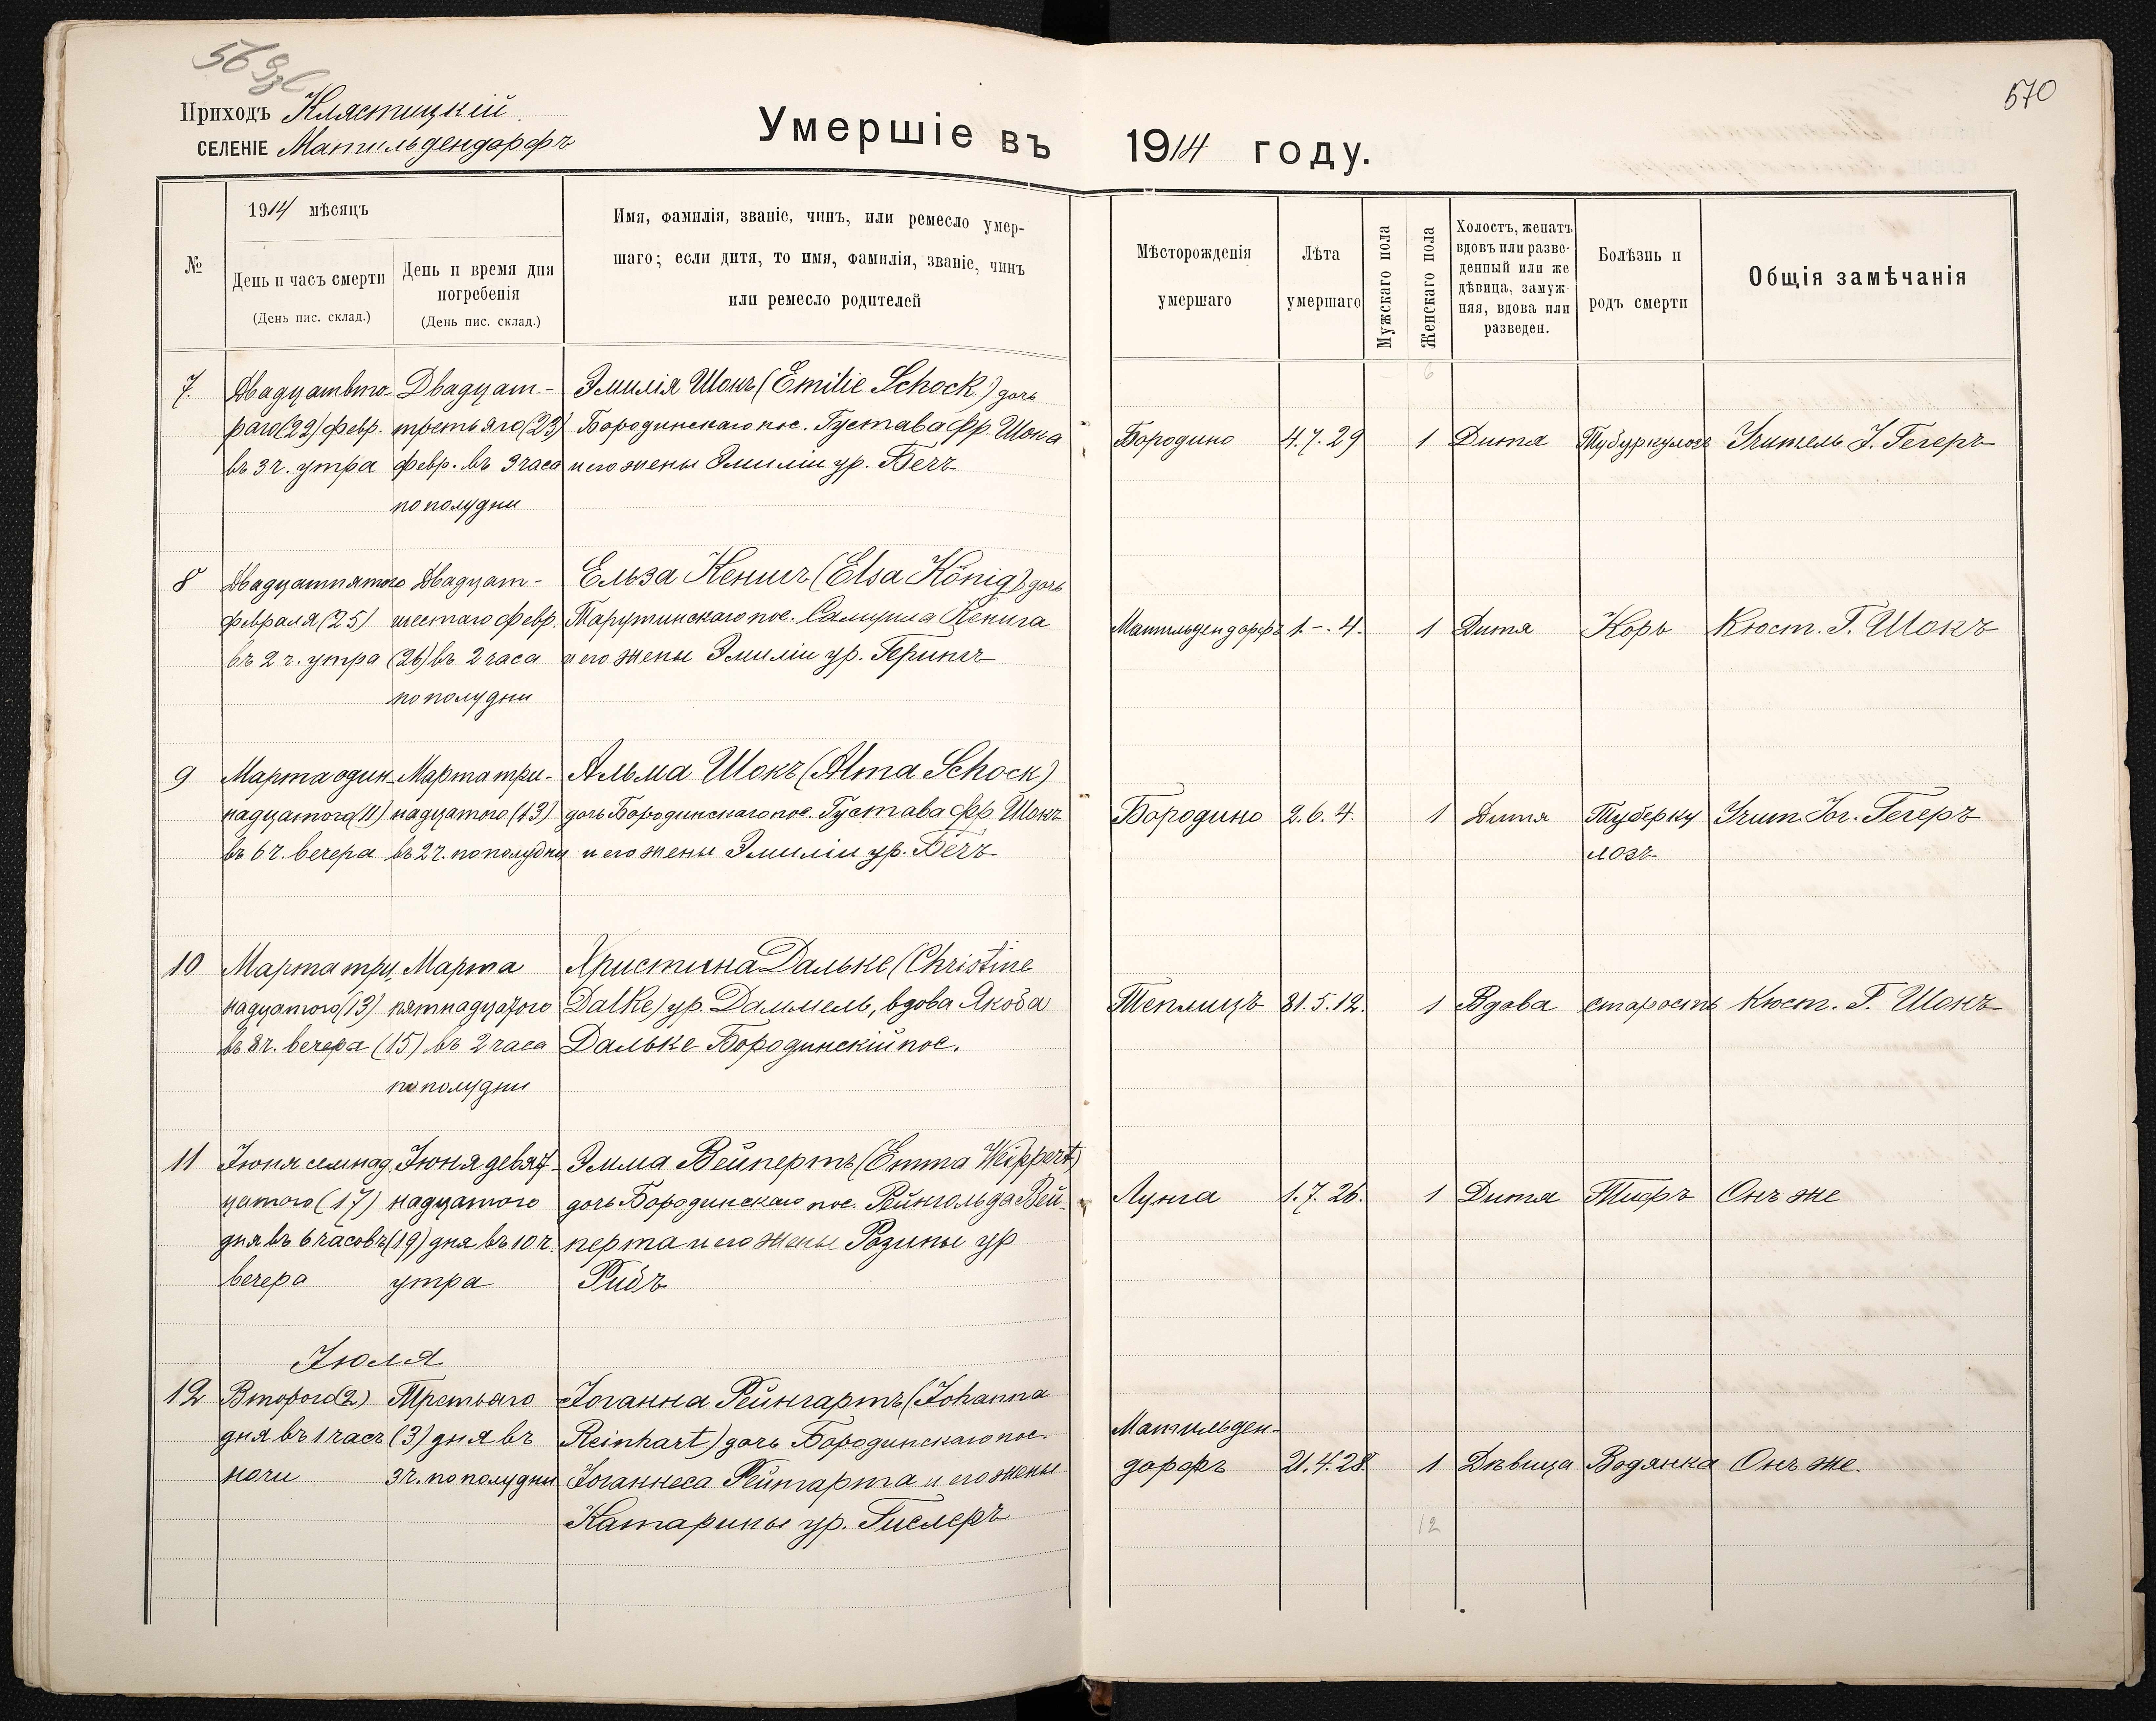 570
Приходъ Клястицкій
СЕЛЕНІЕ Матильдендорфъ
Умершіе въ 1914 году.
№
1914 мѣсяцъ
День и часъ смерти
(День пис. склад.)
День и время дня
погребенія
(День пис. склад.)
Имя, фамилія, званіе, чинъ, или ремесло умер-
шаго; если дитя, то имя, фамилія, званіе, чинъ
или ремесло родителей
Мѣсторожденія
умершаго
Лѣта
умершаго
Мужскаго пола
Женскаго пола
Холостъ, женатъ
вдовъ или разве-
денный или же
дѣвица, замуж-
няя, вдова или
разведен.
Болѣзнь и
родъ смерти
Общія замѣчанія
6
7.
Двадцатьвто-
раго (22) февр.
въ 3 ч. утра
Двадцат-
третьяго (23)
февр. въ 3 часа
пополудни
Эмилія Шокъ (Emilie Schock) дочь
Бородинскаго пос. Густава Фр. Шока
и его жены Эмиліи ур. Бечъ
Бородино
4.7.29
1
Дитя
Тубуркулозъ
Учитель І. Гегеръ
8
Двадцатпятого
февраля (25)
въ 2 ч. утра
Двадцат-
шестаго февр.
(26) въ 2 часа
пополудни
Ельза Кенигъ (Elsa König) дочь
Тарутинскаго пос. Самуила Кенига
и его жены Эмиліи ур. Герингъ
Матильдендорфъ
1.-.4.
1
Дитя
Корь
Кюст. Г. Шокъ
9
Марта один-
надцатого (11)
въ 6 ч. вечера
Марта три-
надцатого (13)
въ 2 ч. пополудни
Альма Шокъ (Alma Schock)
дочь Бородинскаго пос. Густава Фр Шокъ
и его жены Эмиліи ур. Бечъ
Бородино
2.6.4.
1
Дитя
Туберку
лозъ
Учит. Іог. Гегеръ
10
Марта три
надцатого (13)
въ 8 ч. вечера
Марта
пятнадцатого
(15) въ 2 часа
пополудни
Христина Дальке (Christine
Dalke) ур. Даммель, вдова Якова
Дальке Бородинскій пос.
Теплицъ
81.5.12.
1
Вдова
старость
Кюст. Г. Шокъ
11
Іюня семнад
цатого (17)
дня въ 6 часовъ
вечера
Іюня девят-
надцатого
(19) дня въ 10 ч.
утра
Эмма Вейпертъ (Emma Weippert)
дочь Бородинскаго пос. Рейнгольда Вей-
перта и его жены Розины ур
Рибъ
Лунга
1.7.26.
1
Дитя
Тифъ
Онъ же
Іюля
12
Второго (2)
дня въ 1 часъ
ночи
Третьяго
(3) дня въ
3 ч. пополудни
Іоганна Рейнгартъ (Johanna
Reinhart) дочь Бородинскаго пос.
Іоганнеса Рейнгарта и его жены
Катарины ур. Гислеръ
Матильден-
дорфъ
21.4.28.
1
Дѣвица
Водянка
Онъ же.
12